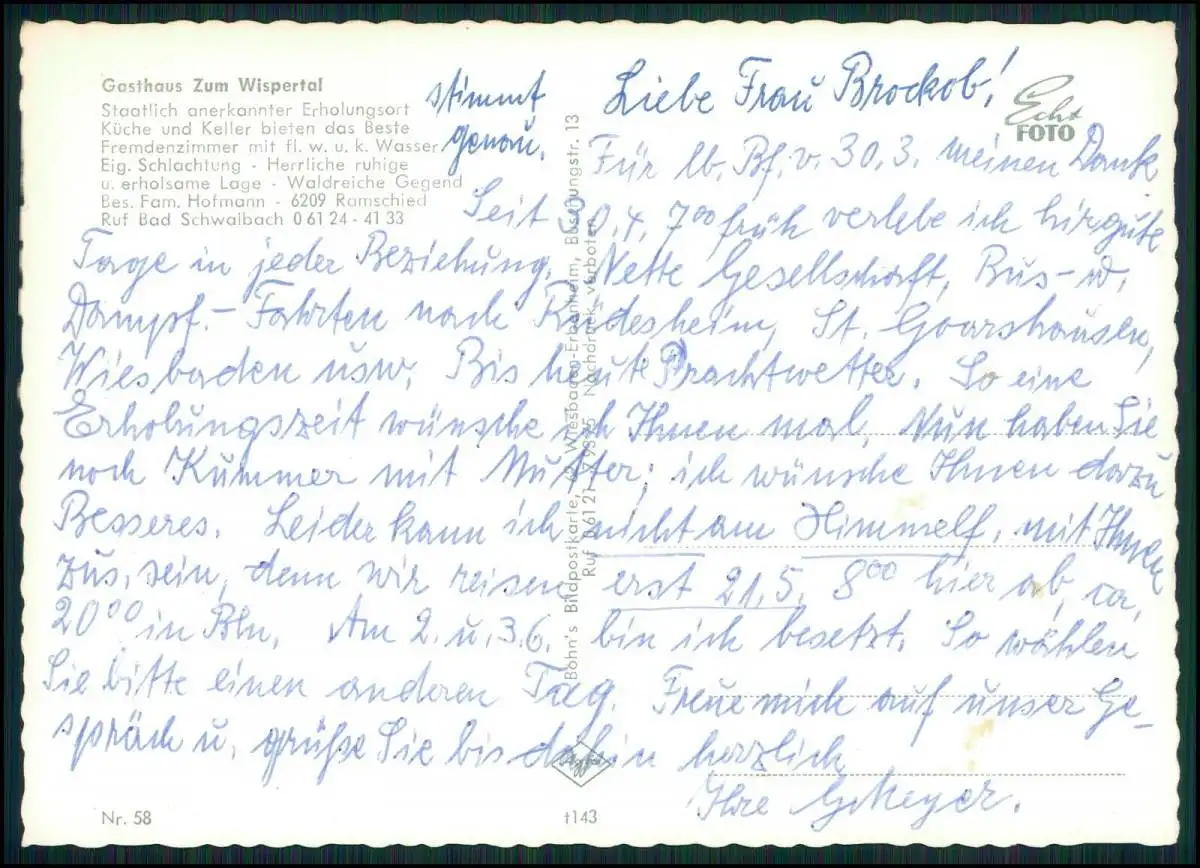 Gasthaus Zum Wispertal
Staatlich anerkannter Erholungsort
Küche und Keller bieten das Beste
Fremdenzimmer mit fl. w. u. k. Wasser
Eig. Schlachtung - Herrliche ruhige
u. erholsame Lage - Waldreiche Gegend
Bes. Fam. Hofmann - 6209 Ramschied
Ruf Bad Schwalbach 0 61 24 - 41 33
stimmt
genau.
Echt
FOTO
Liebe Frau Brockob!
Für lb. Bf. v. 30.3. meinen Dank
Seit 30.4. 7⁰⁰ früh verlebe ich hir gute
Tage in jeder Beziehung. Nette Gesellschaft, Bus- u.
Dampf.- Fahrten nach Rüdesheim, St. Goarshausen,
Wiesbaden usw. Bis heute Prachtwetter. So eine
Erholungszeit wünsche ich Ihnen mal. Nun haben Sie
noch Kummer mit Mutter; ich wünsche Ihnen dazu
Besseres. Leider kann ich nicht am Himmelf. mit Ihnen
zus. sein, denn wir reisen erst 21.5. 8⁰⁰ hier ab, ca.
20⁰⁰ in Bln. Am 2. u. 3.6. bin ich besetzt. So wählen
Sie bitte einen anderen Tag. Freue mich auf unser Ge-
spräch u. grüße Sie bis dahin herzlich
Ihre Meyer.
Bohn's Bildpostkarte, 62 Wiesbaden-Erbenheim, Buschungstr. 13
Ruf 0 61 21 Nachdruck verboten
Agfa
Nr. 58
t143